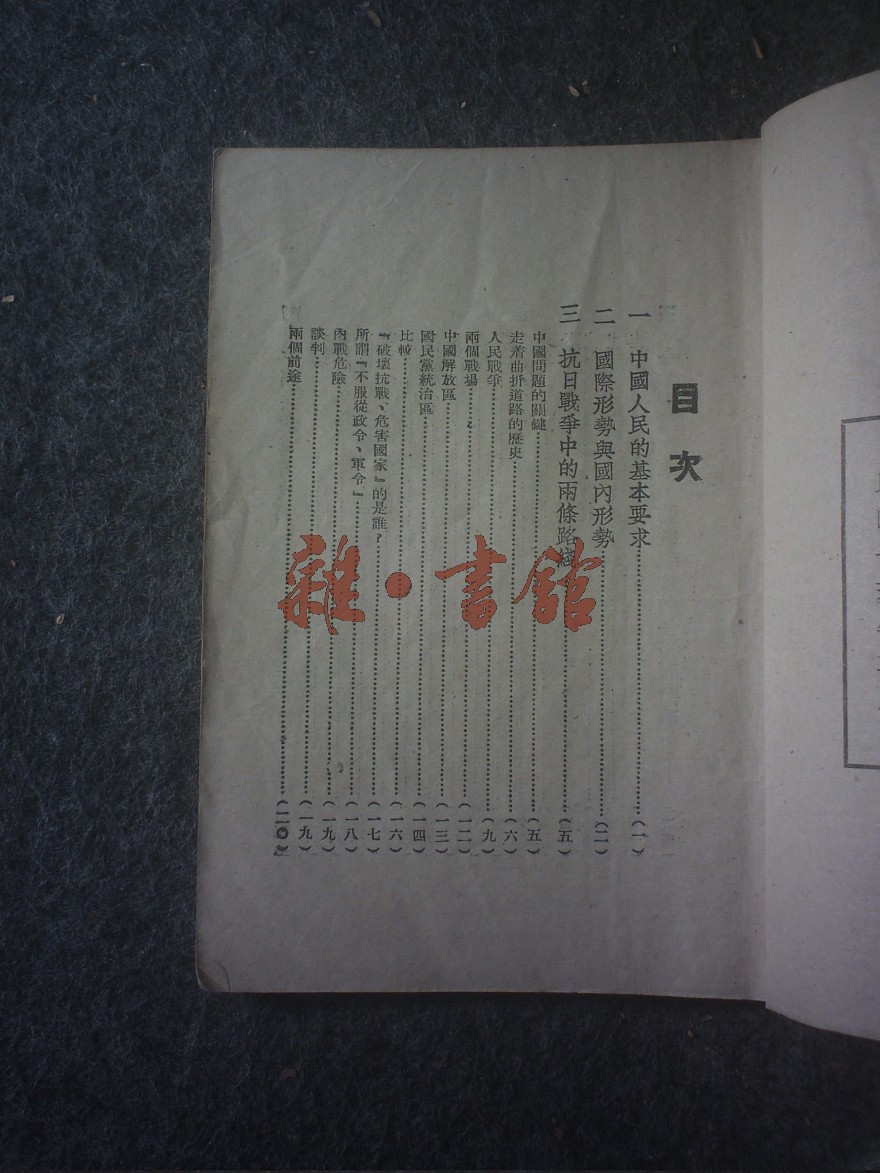 目次
一 中國人民的基本要求……（一）
二 國際形勢與國內形勢……（二）
三 抗日戰爭中的兩條路綫……（五）
中國問題的關鍵……（五）
走着曲折道路的歷史……（六）
人民戰爭……（九）
兩個戰場……（一二）
中國解放區……（一三）
國民黨統治區……（一四）
比較……（一六）
『破壞抗戰、危害國家』的是誰？……（一七）
所謂『不服從政令、軍令』……（一八）
內戰危險……（一九）
談判……（一九）
兩個前途……（二〇）
雜·書館